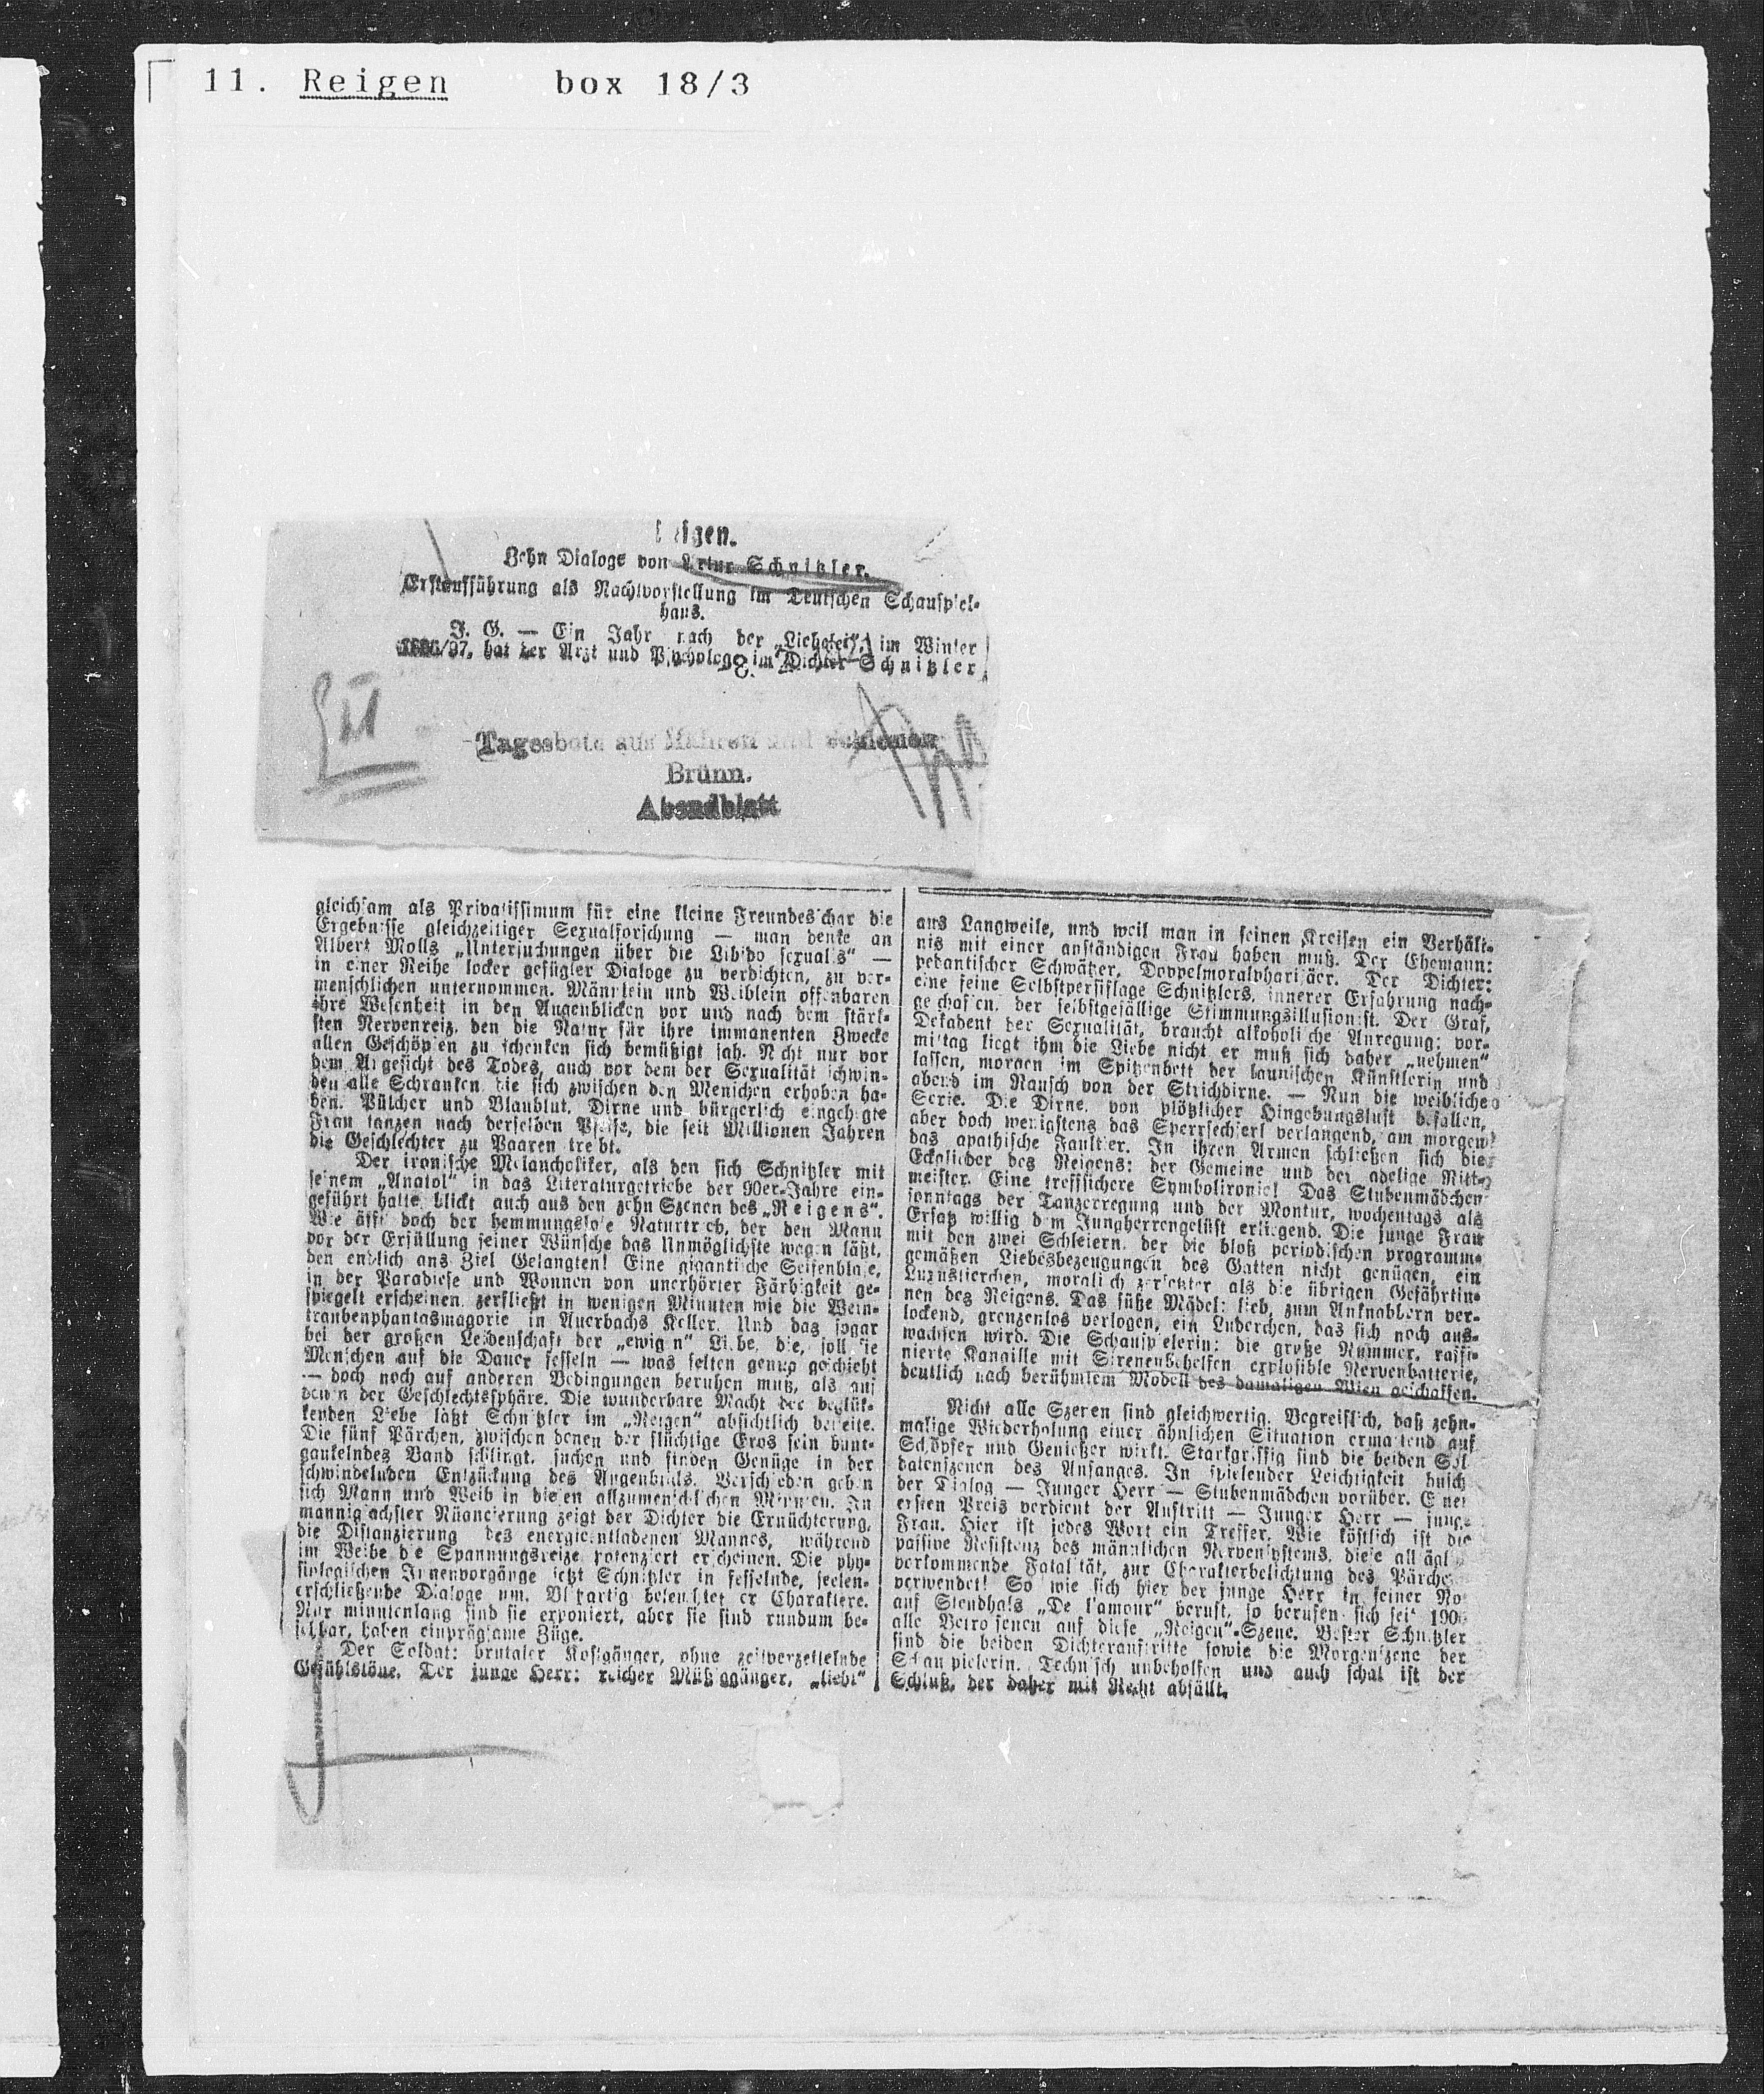 11. Reigen box 18/3
Reigen.
Zehn Dialoge von Artur Schnitzler.
Erstaufführung als Nachtvorstellung im Deutschen Schauspiel-
haus.
J. G. — Ein Jahr nach der „Liebelei“, im Winter
1896/97, hat der Arzt und Psycholog im Dichter Schnitzler
Tagesbote aus Mähren und Schlesien
Brünn.
Abendblatt
gleichsam als Privatissimum für eine kleine Freundesschar die
Ergebnisse gleichzeitiger Sexualforschung — man denke an
Albert Molls „Untersuchungen über die Libido sexualis“ —
in einer Reihe locker gefügter Dialoge zu verdichten, zu ver-
menschlichen unternommen. Männlein und Weiblein offenbaren
ihre Wesenheit in den Augenblicken vor und nach dem stärk-
sten Nervenreiz, den die Natur für ihre immanenten Zwecke
allen Geschöpfen zu schenken sich bemüßigt sah. Nicht nur vor
dem Angesicht des Todes, auch vor dem der Sexualität schwin-
den alle Schranken die sich zwischen den Menschen erhoben ha-
ben. Pülcher und Blaublut, Dirne und bürgerlich eingehegte
Frau tanzen nach derselben Pfeife, die seit Millionen Jahren
die Geschlechter zu Paaren treibt.
Der ironische Melancholiker, als den sich Schnitzler mit
seinem „Anatol“ in das Literaturgetriebe der 90er-Jahre ein-
geführt hatte, blickt auch aus den zehn Szenen des „Reigens“.
Wie äfft doch der hemmungslose Naturtrieb, der den Mann
vor der Erfüllung seiner Wünsche das Unmöglichste wagen läßt,
den endlich ans Ziel Gelangten! Eine gigantische Seifenblase,
in der Paradiese und Wonnen von unerhörter Färbigkeit ge-
spiegelt erscheinen, zerfließt in wenigen Minuten wie die Wein-
traubenphantasmagorie in Auerbachs Keller. Und das sogar
bei der großen Leidenschaft der „ewigen“ Liebe, die, soll sie
Menschen auf die Dauer fesseln — was selten genug geschieht
— doch noch auf anderen Bedingungen beruhen muß, als auf
denen der Geschlechtssphäre. Die wunderbare Macht der beglük-
kenden Liebe läßt Schnitzler im „Reigen“ absichtlich beiseite.
Die fünf Pärchen, zwischen denen der flüchtige Eros sein bunt-
gaukelndes Band schlingt, suchen und finden Genüge in der
schwindelnden Entzückung des Augenblicks. Verschieden geben
sich Mann und Weib in diesen allzumenschlichen Minuten. In
mannigfachster Nüancierung zeigt der Dichter die Ernüchterung,
die Distanzierung des energieentladenen Mannes, während
im Weibe die Spannungsreize potenziert erscheinen. Die phy-
siologischen Innenvorgänge setzt Schnitzler in fesselnde, seelen-
erschließende Dialoge um. Blitzartig beleuchtet er Charaktere.
Nur minutenlang sind sie exponiert, aber sie sind rundum be-
sehbar, haben einprägsame Züge.
Der Soldat: brutaler Kostgänger, ohne zeitverzettelnde
Gefühlstöne. Der junge Herr: reicher Müßiggänger, „liebt“
aus Langweile, und weil man in seinen Kreisen ein Verhält-
nis mit einer anständigen Frau haben muß. Der Ehemann:
pedantischer Schwätzer, Doppelmoralpharisäer. Der Dichter:
eine feine Selbstpersiflage Schnitzlers, innerer Erfahrung nach-
geschaffen, der selbstgefällige Stimmungsillusionist. Der Graf,
Dekadent der Sexualität, braucht alkoholische Anregung; vor-
mittag liegt ihm die Liebe nicht er muß sich daher „nehmen“
lassen, morgen im Spitzenbett der launischen Künstlerin und
abend im Rausch von der Strichdirne. — Nun die weibliche
Serie. Die Dirne, von plötzlicher Hingebungslust befallen,
aber doch wenigstens das Sperrsechserl verlangend, am morgen
das apathische Faultier. In ihren Armen schließen sich die
Eckglieder des Reigens: der Gemeine und der adelige Ritt-
meister. Eine treffsichere Symbolironie! Das Stubenmädchen
sonntags der Tanzerregung und der Montur, wochentags als
Ersatz willig dem Jungherrengelüst erliegend. Die junge Frau
mit den zwei Schleiern, der die bloß periodischen programm-
gemäßen Liebesbezeugungen des Gatten nicht genügen, ein
Luxustierchen, moralisch zersetzter als die übrigen Gefährtin-
nen des Reigens. Das süße Mädel: lieb, zum Anknabbern ver-
lockend, grenzenlos verlogen, ein Luderchen, das sich noch aus-
wachsen wird. Die Schauspielerin: die große Nummer, raffi-
nierte Kanaille mit Sirenenbehelfen explosible Nervenbatterie,
deutlich nach berühmtem Modell des damaligen Wien geschaffen.
Nicht alle Szenen sind gleichwertig. Begreiflich, daß zehn-
malige Wiederholung einer ähnlichen Situation ermattend auf
Schöpfer und Genießer wirkt. Starkgriffig sind die beiden Sol
datenszenen des Anfanges. In spielender Leichtigkeit huscht
der Dialog — Junger Herr — Stubenmädchen vorüber. Einen
ersten Preis verdient der Auftritt — Junger Herr — junge
Frau. Hier ist jedes Wort ein Treffer. Wie köstlich ist die
passive Resistenz des männlichen Nervensystems, diese alltägl
vorkommende Fatalität, zur Charakterbelichtung des Pärche
verwendet! So wie sich hier der junge Herr in seiner No
auf Stendhals „De l'amour“ beruft, so berufen sich seit 190
alle Betroffenen auf diese „Reigen“-Szene. Bester Schnitzler
sind die beiden Dichterauftritte sowie die Morgenszene der
Schauspielerin. Technisch unbeholfen und auch schal ist der
Schluß, der daher mit Recht abfällt.